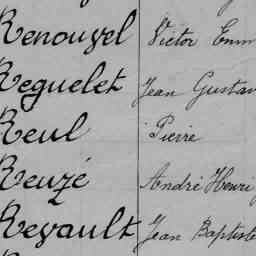 Renouvel Victor
Reguelet Jean
Reul Pierre
Reuzé André Henri
Revault Jean Baptiste